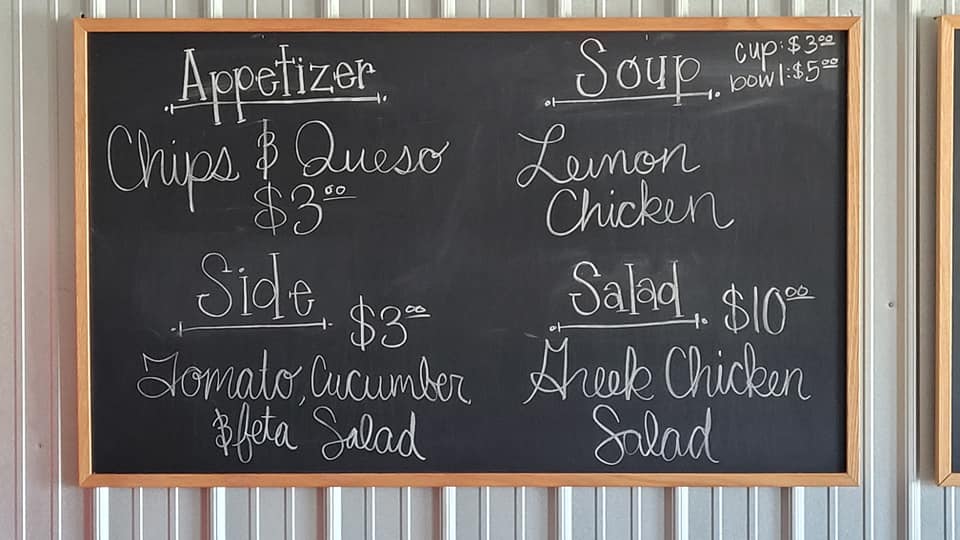 Appetizer
Chips & Queso
$3.00
Soup
cup: $3.00
bowl: $5.00
Lemon
Chicken
Side
$3.00
Tomato, Cucumber
& feta Salad
Salad
$10.00
Greek Chicken
Salad